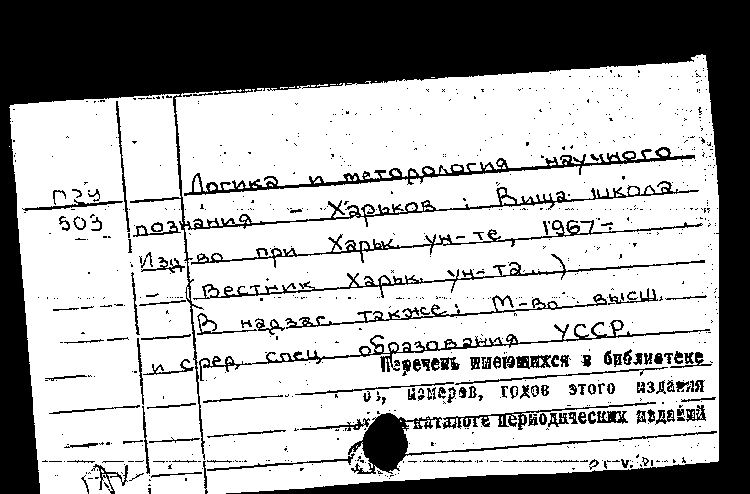 Логика и методология научного
П24
503
познания. – Харьков: Вища школа.
Изд-во при Харьк. ун-те, 1967-
– (Вестник Харьк. ун-та...)
В надзаг. также: М-во высш.
и сред. спец. образования УССР.
Перечень имеющихся в библиотеке
номеров, годов этого издания
каталоге периодических изданий